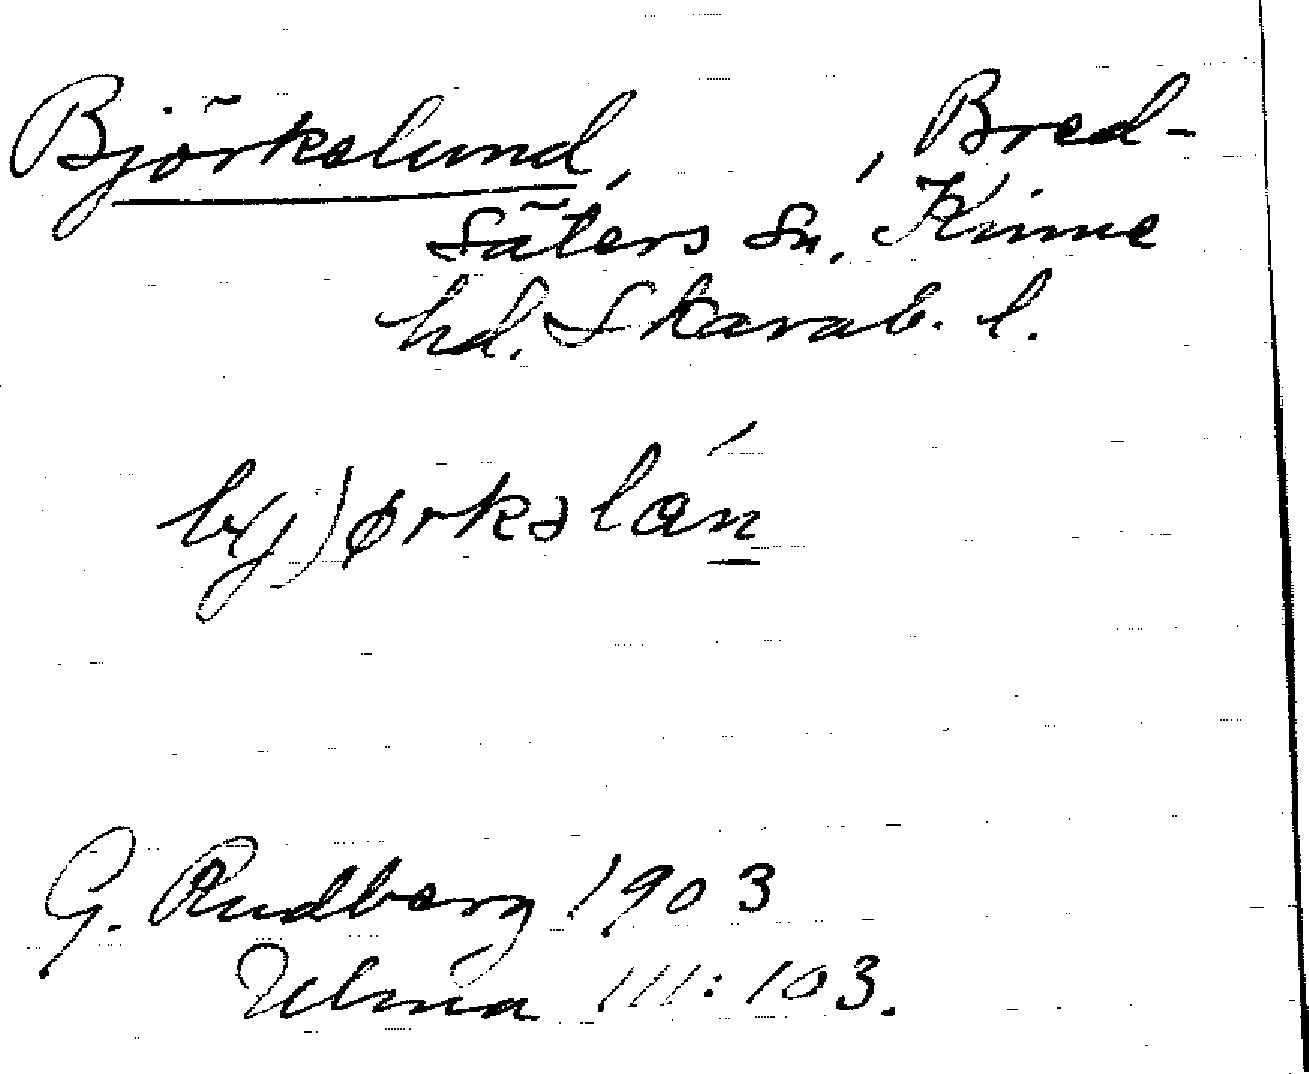 Björkelund, , Bred-
säters sn, Kinne
hd. Skarab. l.
bj)ørkəlán
G. Rudberg 1903
Ulma 111:103.